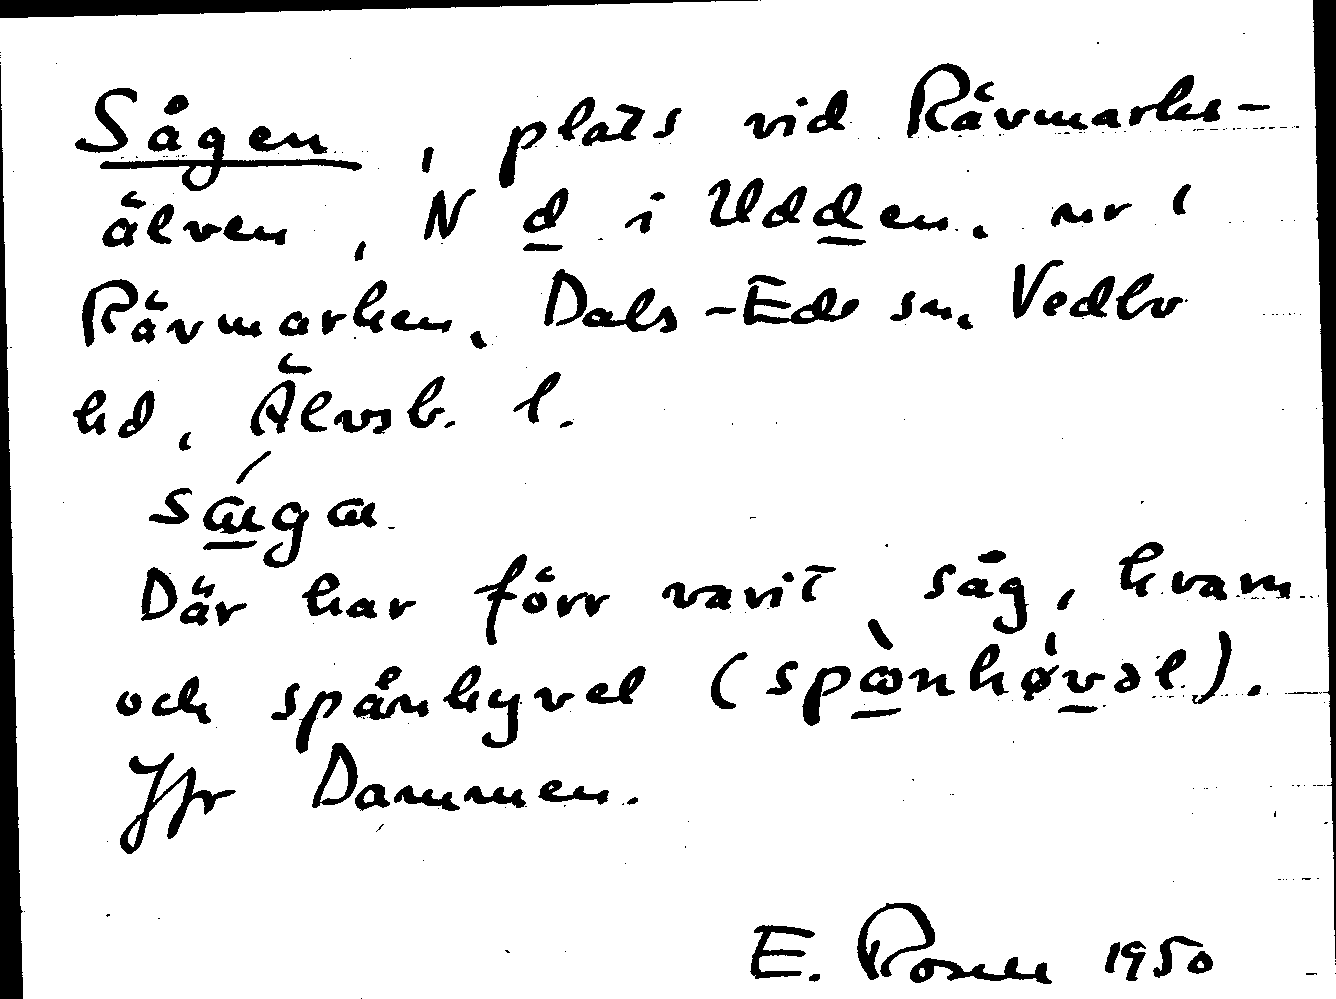 Sågen, plats vid Rävmarks-
älven, N d i Udden, nr 1
Rävmarken, Dals-Eds sn, Vedbo
hd, Älvsb. l.
Där har förr varit såg, kvarn
och spånhyvel (spònhø̀vəl).
Jfr Dammen.
E. Rosell 1950